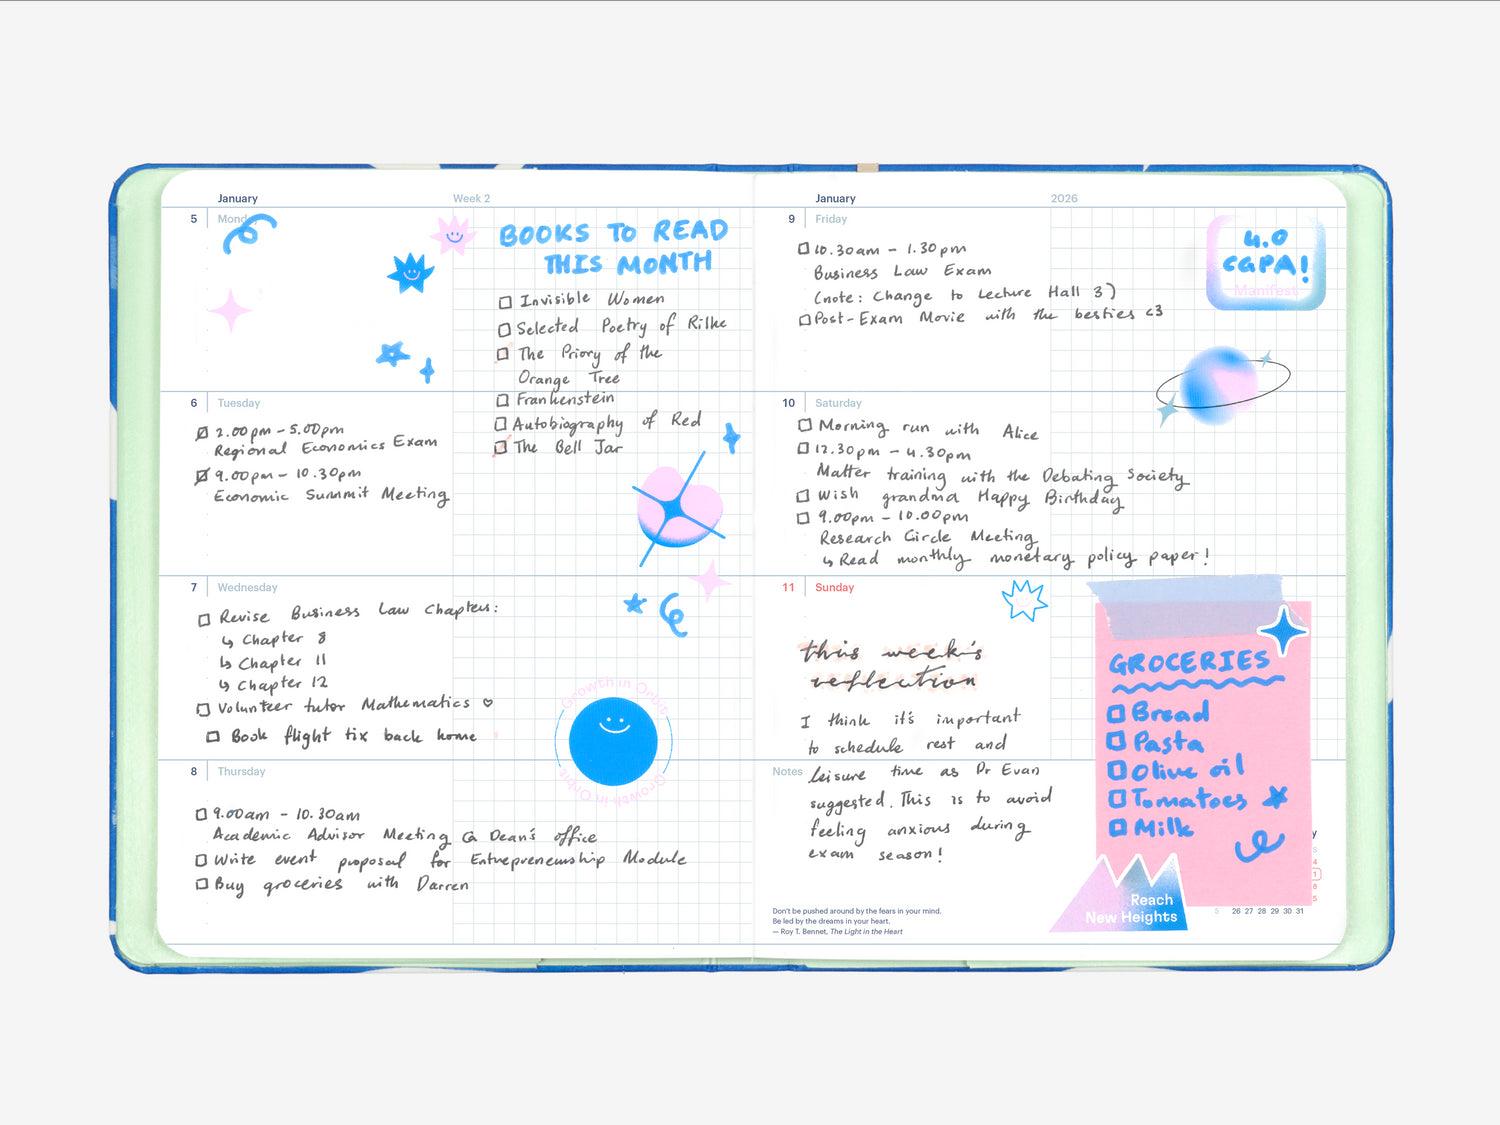 January
Week 2
5
Monday
BOOKS TO READ
THIS MONTH
Invisible Women
Selected Poetry of Rilke
The Priory of the
Orange Tree
Frankenstein
Autobiography of Red
The Bell Jar
6
Tuesday
2.00pm - 5.00pm
Regional Economics Exam
9.00pm - 10.30pm
Economic Summit Meeting
7
Wednesday
Revise Business Law Chapters:
↳ Chapter 8
↳ Chapter 11
↳ Chapter 12
Volunteer tutor Mathematics ♡
Book flight tix back home
Growth in Orbit
Growth in Orbit
8
Thursday
9.00am - 10.30am
Academic Advisor Meeting @ Dean's office
Write event proposal for Entrepreneurship Module
Buy groceries with Darren
January
2026
9
Friday
10.30am - 1.30pm
Business Law Exam
(note: Change to Lecture Hall 3)
Post-Exam Movie with the besties <3
4.0
CGPA!
Manifest
10
Saturday
Morning run with Alice
12.30pm - 4.30pm
Matter training with the Debating Society
Wish grandma Happy Birthday
9.00pm - 10.00pm
Research Circle Meeting
↳ Read monthly monetary policy paper!
11
Sunday
this week's
reflection
I think it's important
to schedule rest and
Notes
leisure time as Dr Evan
suggested. This is to avoid
feeling anxious during
exam season!
Don't be pushed around by the fears in your mind.
Be led by the dreams in your heart.
— Roy T. Bennet, The Light in the Heart
GROCERIES
Bread
Pasta
Olive oil
Tomatoes
Milk
Reach
New Heights
y
s
4
1
8
5
5 26 27 28 29 30 31